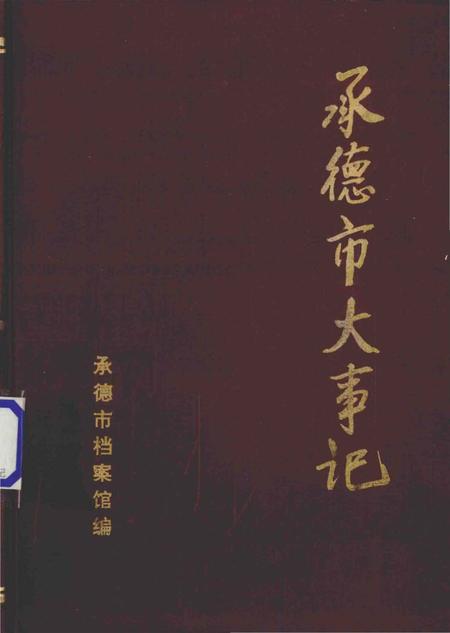 承德市大事记
承德市档案馆编